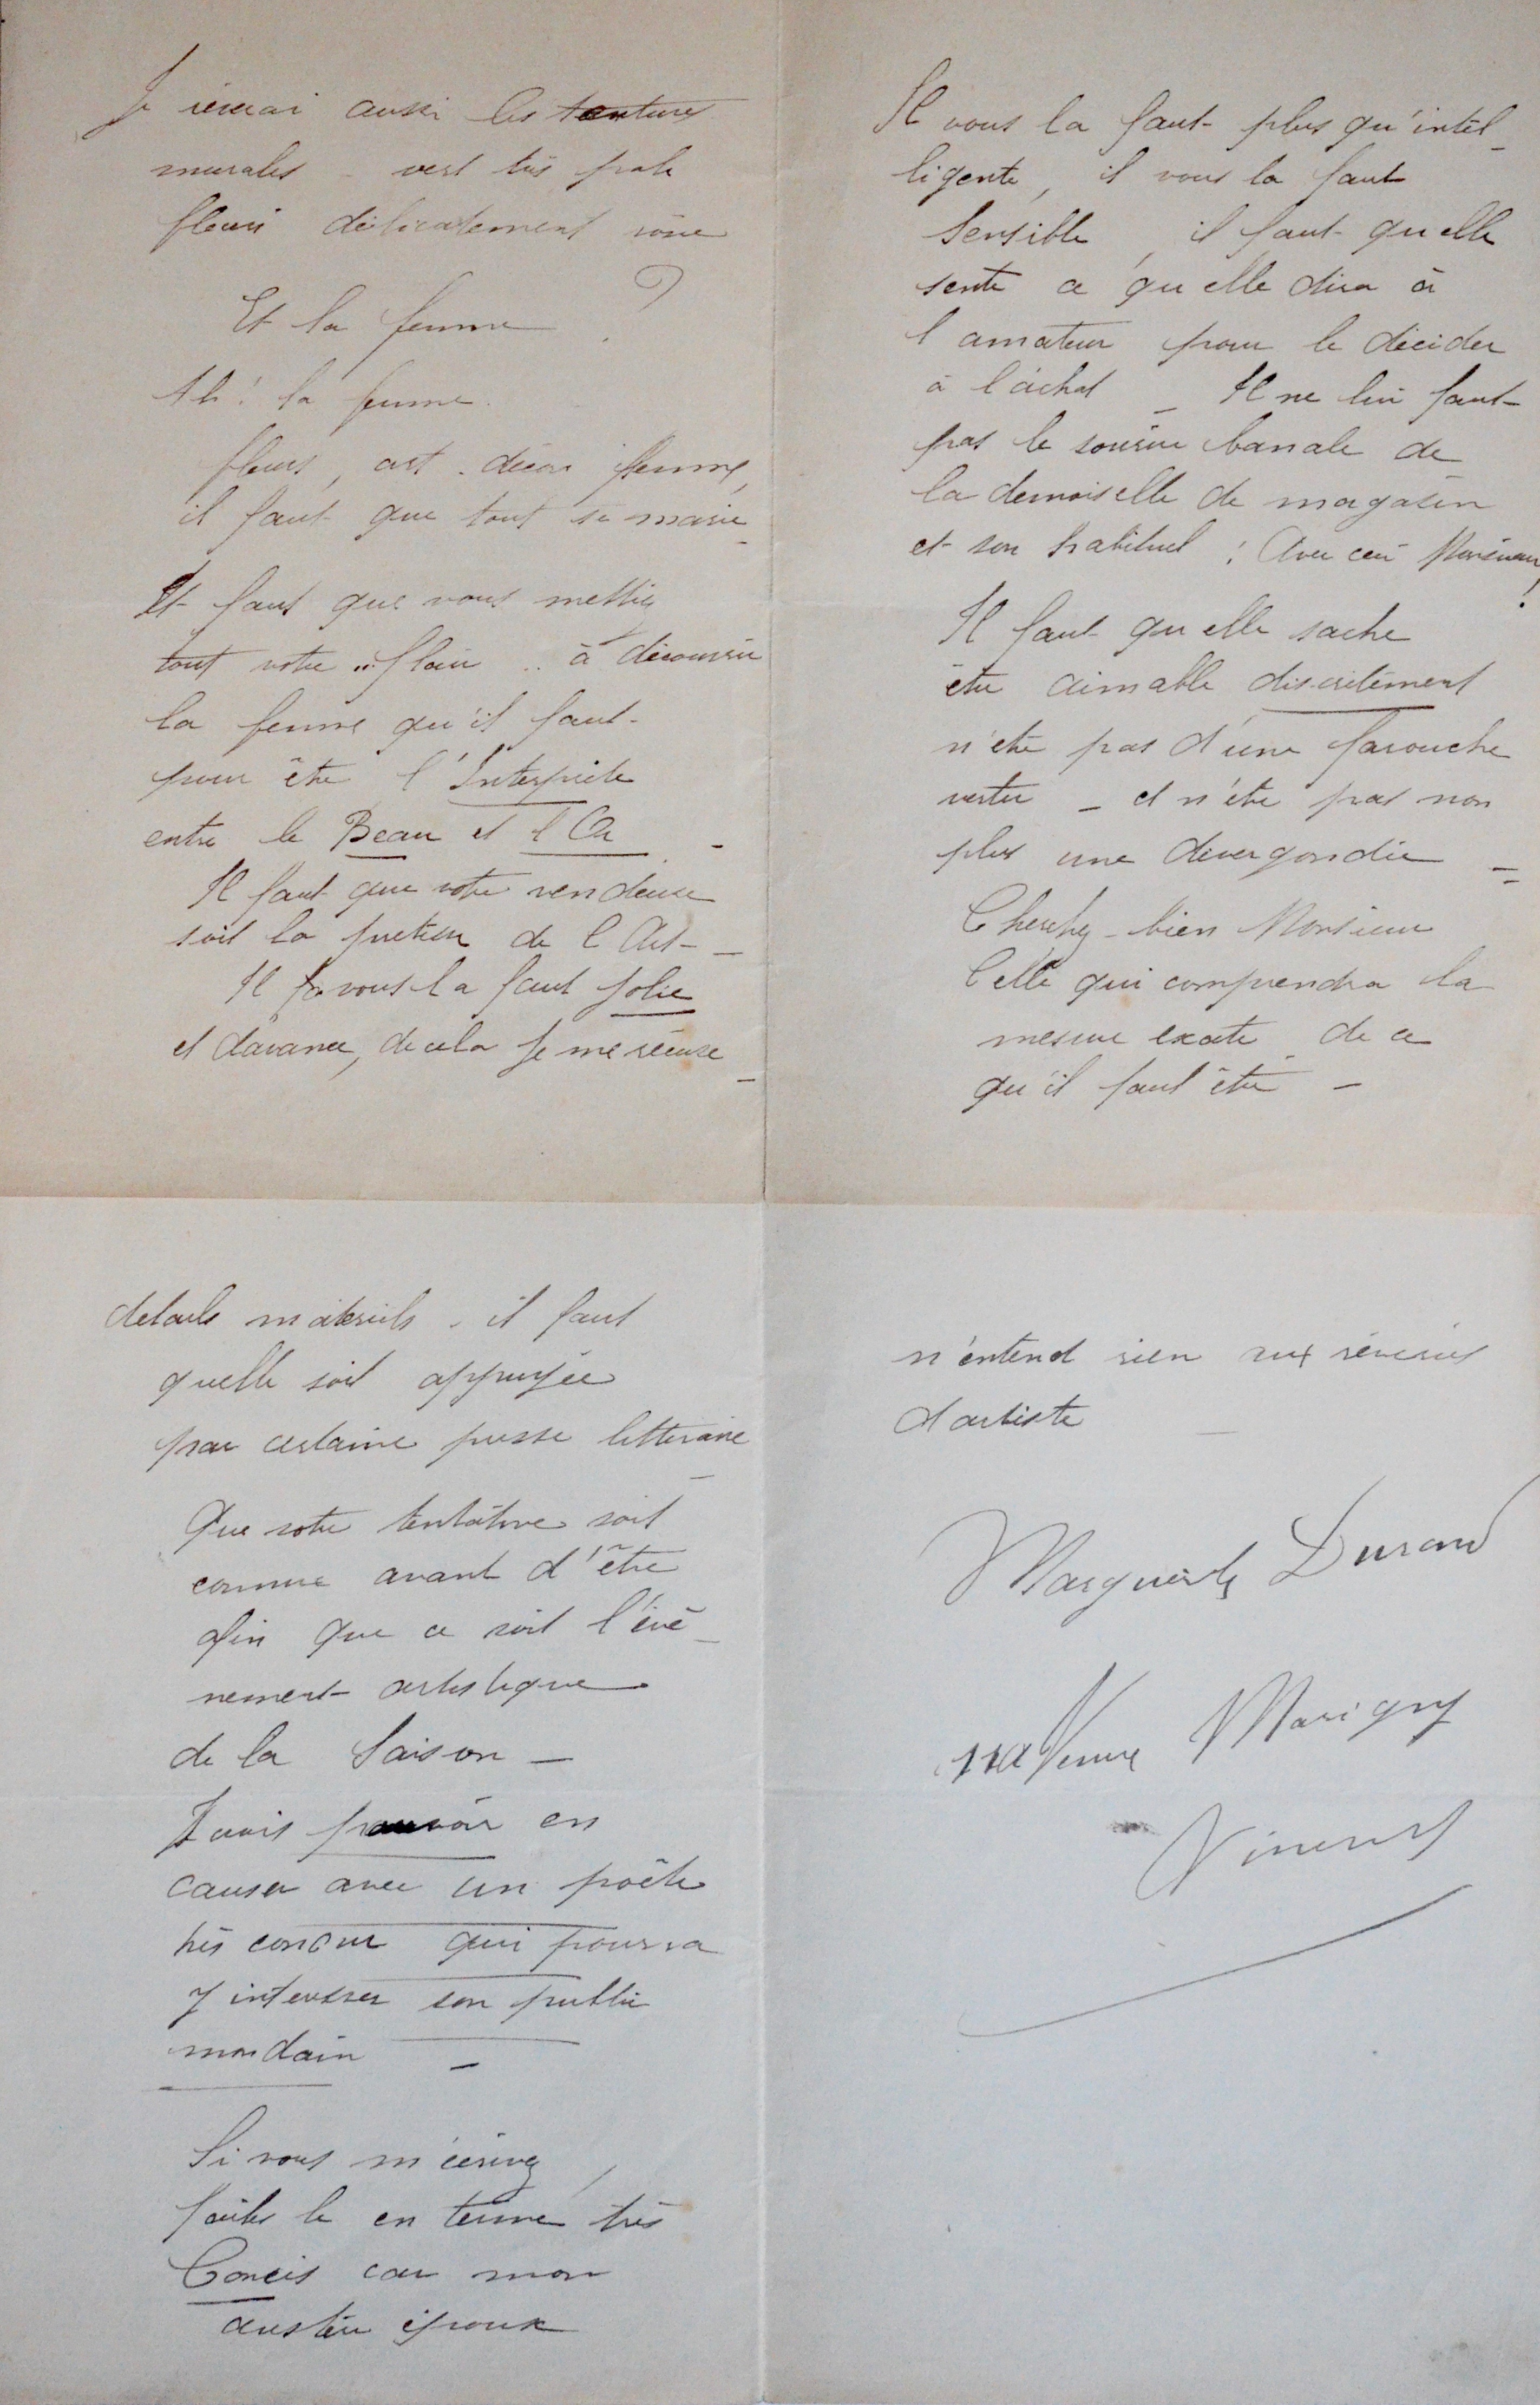 Je rêverai aussi les tentures
murales - vert très pale
fleuri délicatement rosée
Et la femme ?
Ah! la femme.
fleurs, art. décor femme,
il faut que tout se marie -
Il faut que vous mettiez
tout votre "flair" à découvrir
la femme qu'il faut
pour être l'Interprète
entre le Beau et l'Or -
Il faut que votre vendeuse
soit la pretresse de l'Art -
Il vous la faut jolie
et d'avance, de cela je me récuse -
Il vous la faut plus qu'intel-
ligente, il vous la faut
Sensible, il faut qu'elle
sente ce qu'elle dira à
l'amateur pour le décider
à l'achat - Il ne lui faut
pas le sourire banale de
la demoiselle de magasin
et son habituel : Avec ceci Monsieur!
Il faut qu'elle sache
être aimable discrètement
n'etre pas d'une farouche
vertu - et n'être pas non
plus une devergondée -
Cherchez bien Monsieur
Celle qui comprendra la
mesure exacte de ce
qu'il faut être -
details matériels - il faut
quelle soit appuyée
par certaine presse litteraire -
Que votre tentative soit
connue avant d'être
afin que ce soit l'évè-
nement artistique
de la Saison -
Je vais pouvoir en
causer avec un poëte
très connu qui pourra
y interesser son public
mondain -
Si vous m'écrivez,
faites le en terme très
Concis car mon
austère époux
n'entend rien aux rêveries
d'artiste -
Marguerite Durand
avenue Marigny